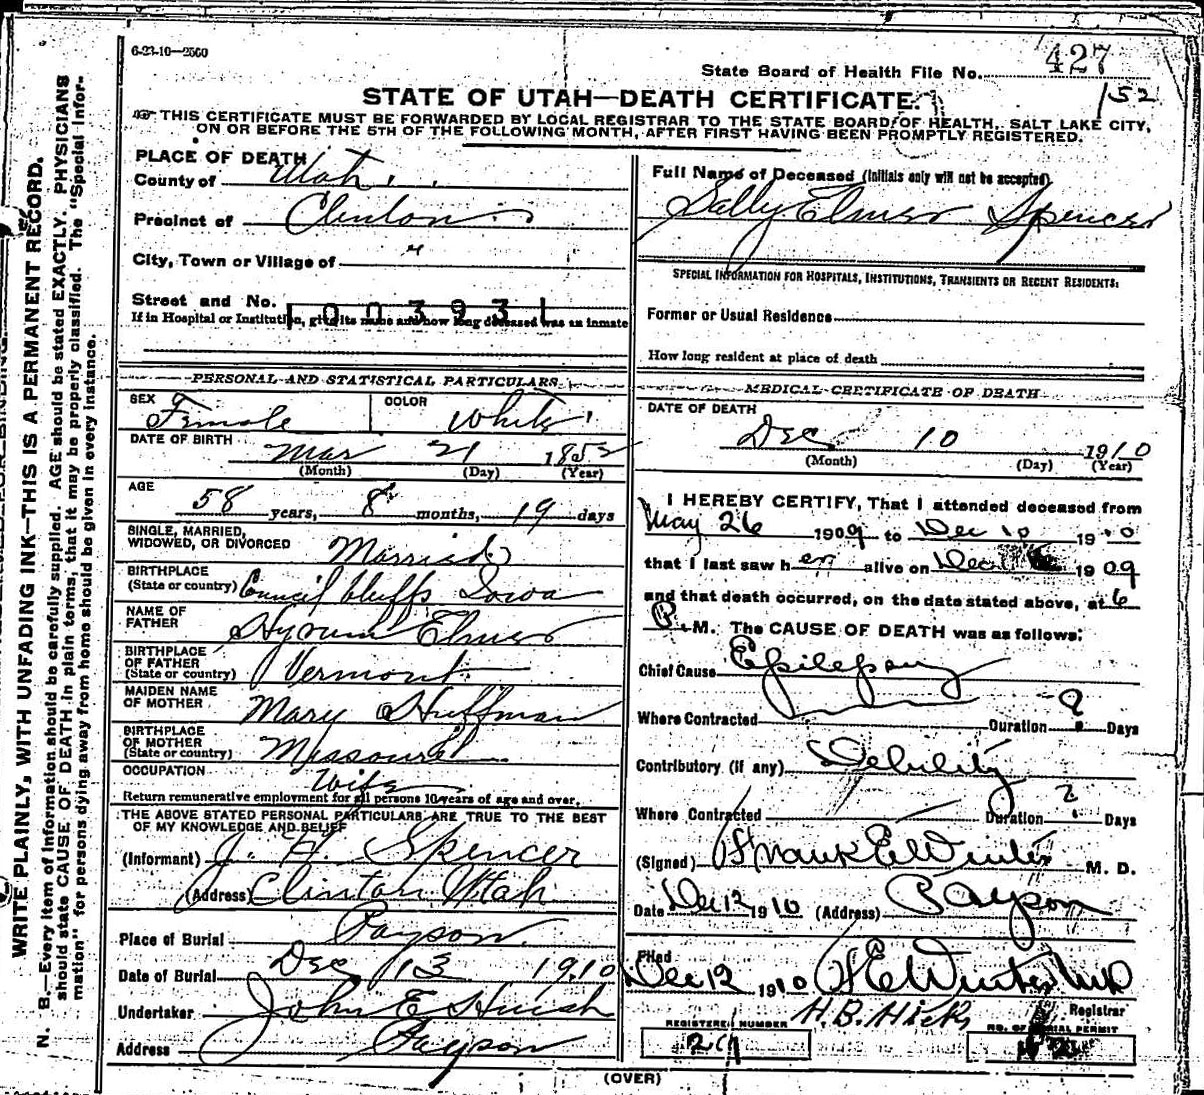 6-23-10—2500
427
State Board of Health File No.
152
STATE OF UTAH—DEATH CERTIFICATE.
THIS CERTIFICATE MUST BE FORWARDED BY LOCAL REGISTRAR TO THE STATE BOARD OF HEALTH, SALT LAKE CITY,
ON OR BEFORE THE 5TH OF THE FOLLOWING MONTH, AFTER FIRST HAVING BEEN PROMPTLY REGISTERED.
WRITE PLAINLY, WITH UNFADING INK—THIS IS A PERMANENT RECORD.
N. B.—Every item of information should be carefully supplied. AGE should be stated EXACTLY. PHYSICIANS
should state CAUSE OF DEATH in plain terms, that it may be properly classified. The "Special Infor-
mation" for persons dying away from home should be given in every instance.
PLACE OF DEATH
County of Utah
Precinct of Clinton
City, Town or Village of "
Street and No.
1003931
If in Hospital or Institution, give its name and how long deceased was an inmate
PERSONAL AND STATISTICAL PARTICULARS
SEX Female COLOR White
DATE OF BIRTH Mar 21 1852
(Month) (Day) (Year)
AGE 58 years, 8 months, 19 days
SINGLE, MARRIED,
WIDOWED, OR DIVORCED Married
BIRTHPLACE
(State or country) Council bluffs Iowa
NAME OF
FATHER Hyrum Elmer
BIRTHPLACE
OF FATHER
(State or country) Vermont
MAIDEN NAME
OF MOTHER Mary Huffman
BIRTHPLACE
OF MOTHER
(State or country) Missouri
OCCUPATION Wife
Return remunerative employment for all persons 10 years of age and over.
THE ABOVE STATED PERSONAL PARTICULARS ARE TRUE TO THE BEST
OF MY KNOWLEDGE AND BELIEF
(Informant) J. H. Spencer
(Address) Clinton Utah
Place of Burial Payson
Date of Burial Dec 13 1910
Undertaker John E
Address Payson
Full Name of Deceased (Initials only will not be accepted)
Sally Elmer Spencer
SPECIAL INFORMATION FOR HOSPITALS, INSTITUTIONS, TRANSIENTS OR RECENT RESIDENTS:
Former or Usual Residence
How long resident at place of death
MEDICAL CERTIFICATE OF DEATH
DATE OF DEATH
Dec 10 1910
(Month) (Day) (Year)
I HEREBY CERTIFY, That I attended deceased from
May 26 1909 to Dec 10 1910
that I last saw her alive on Dec 1909
and that death occurred, on the date stated above, at 6
P. M. The CAUSE OF DEATH was as follows:
Chief Cause Epilepsy
Where Contracted Duration ? Days
Contributory (if any) Debility
Where Contracted Duration ? Days
(Signed) M. D.
Date Dec 12 1910 (Address) Payson
Filed
Dec 12 1910 Winter MD
H. B. Hicks Registrar
REGISTERED NUMBER
NO. OF BURIAL PERMIT
(OVER)